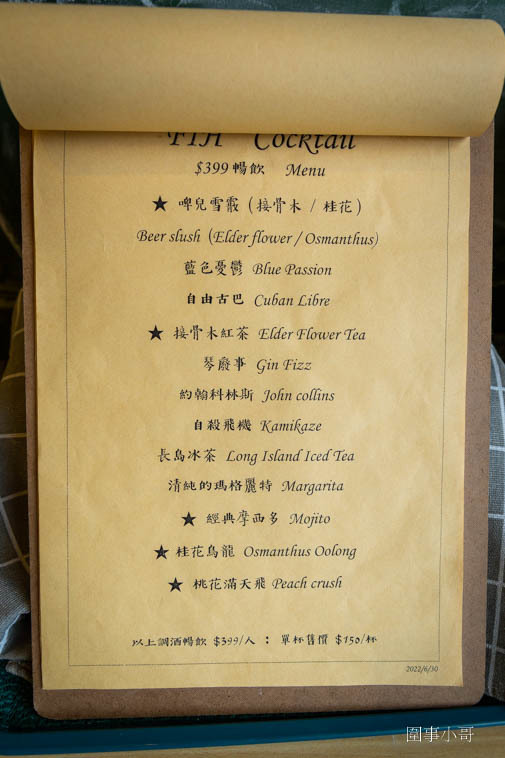 FIH Cocktail
$399 暢飲 Menu
★ 啤兒雪霰 (接骨木 / 桂花)
Beer slush (Elder flower / Osmanthus)
藍色憂鬱 Blue Passion
自由古巴 Cuban Libre
★ 接骨木紅茶 Elder Flower Tea
琴廢事 Gin Fizz
約翰科林斯 John collins
自殺飛機 Kamikaze
長島冰茶 Long Island Iced Tea
清純的瑪格麗特 Margarita
★ 經典摩西多 Mojito
★ 桂花烏龍 Osmanthus Oolong
★ 桃花滿天飛 Peach crush
以上調酒暢飲 $399/人 : 單杯售價 $150/杯
2022/6/30
圍事小哥